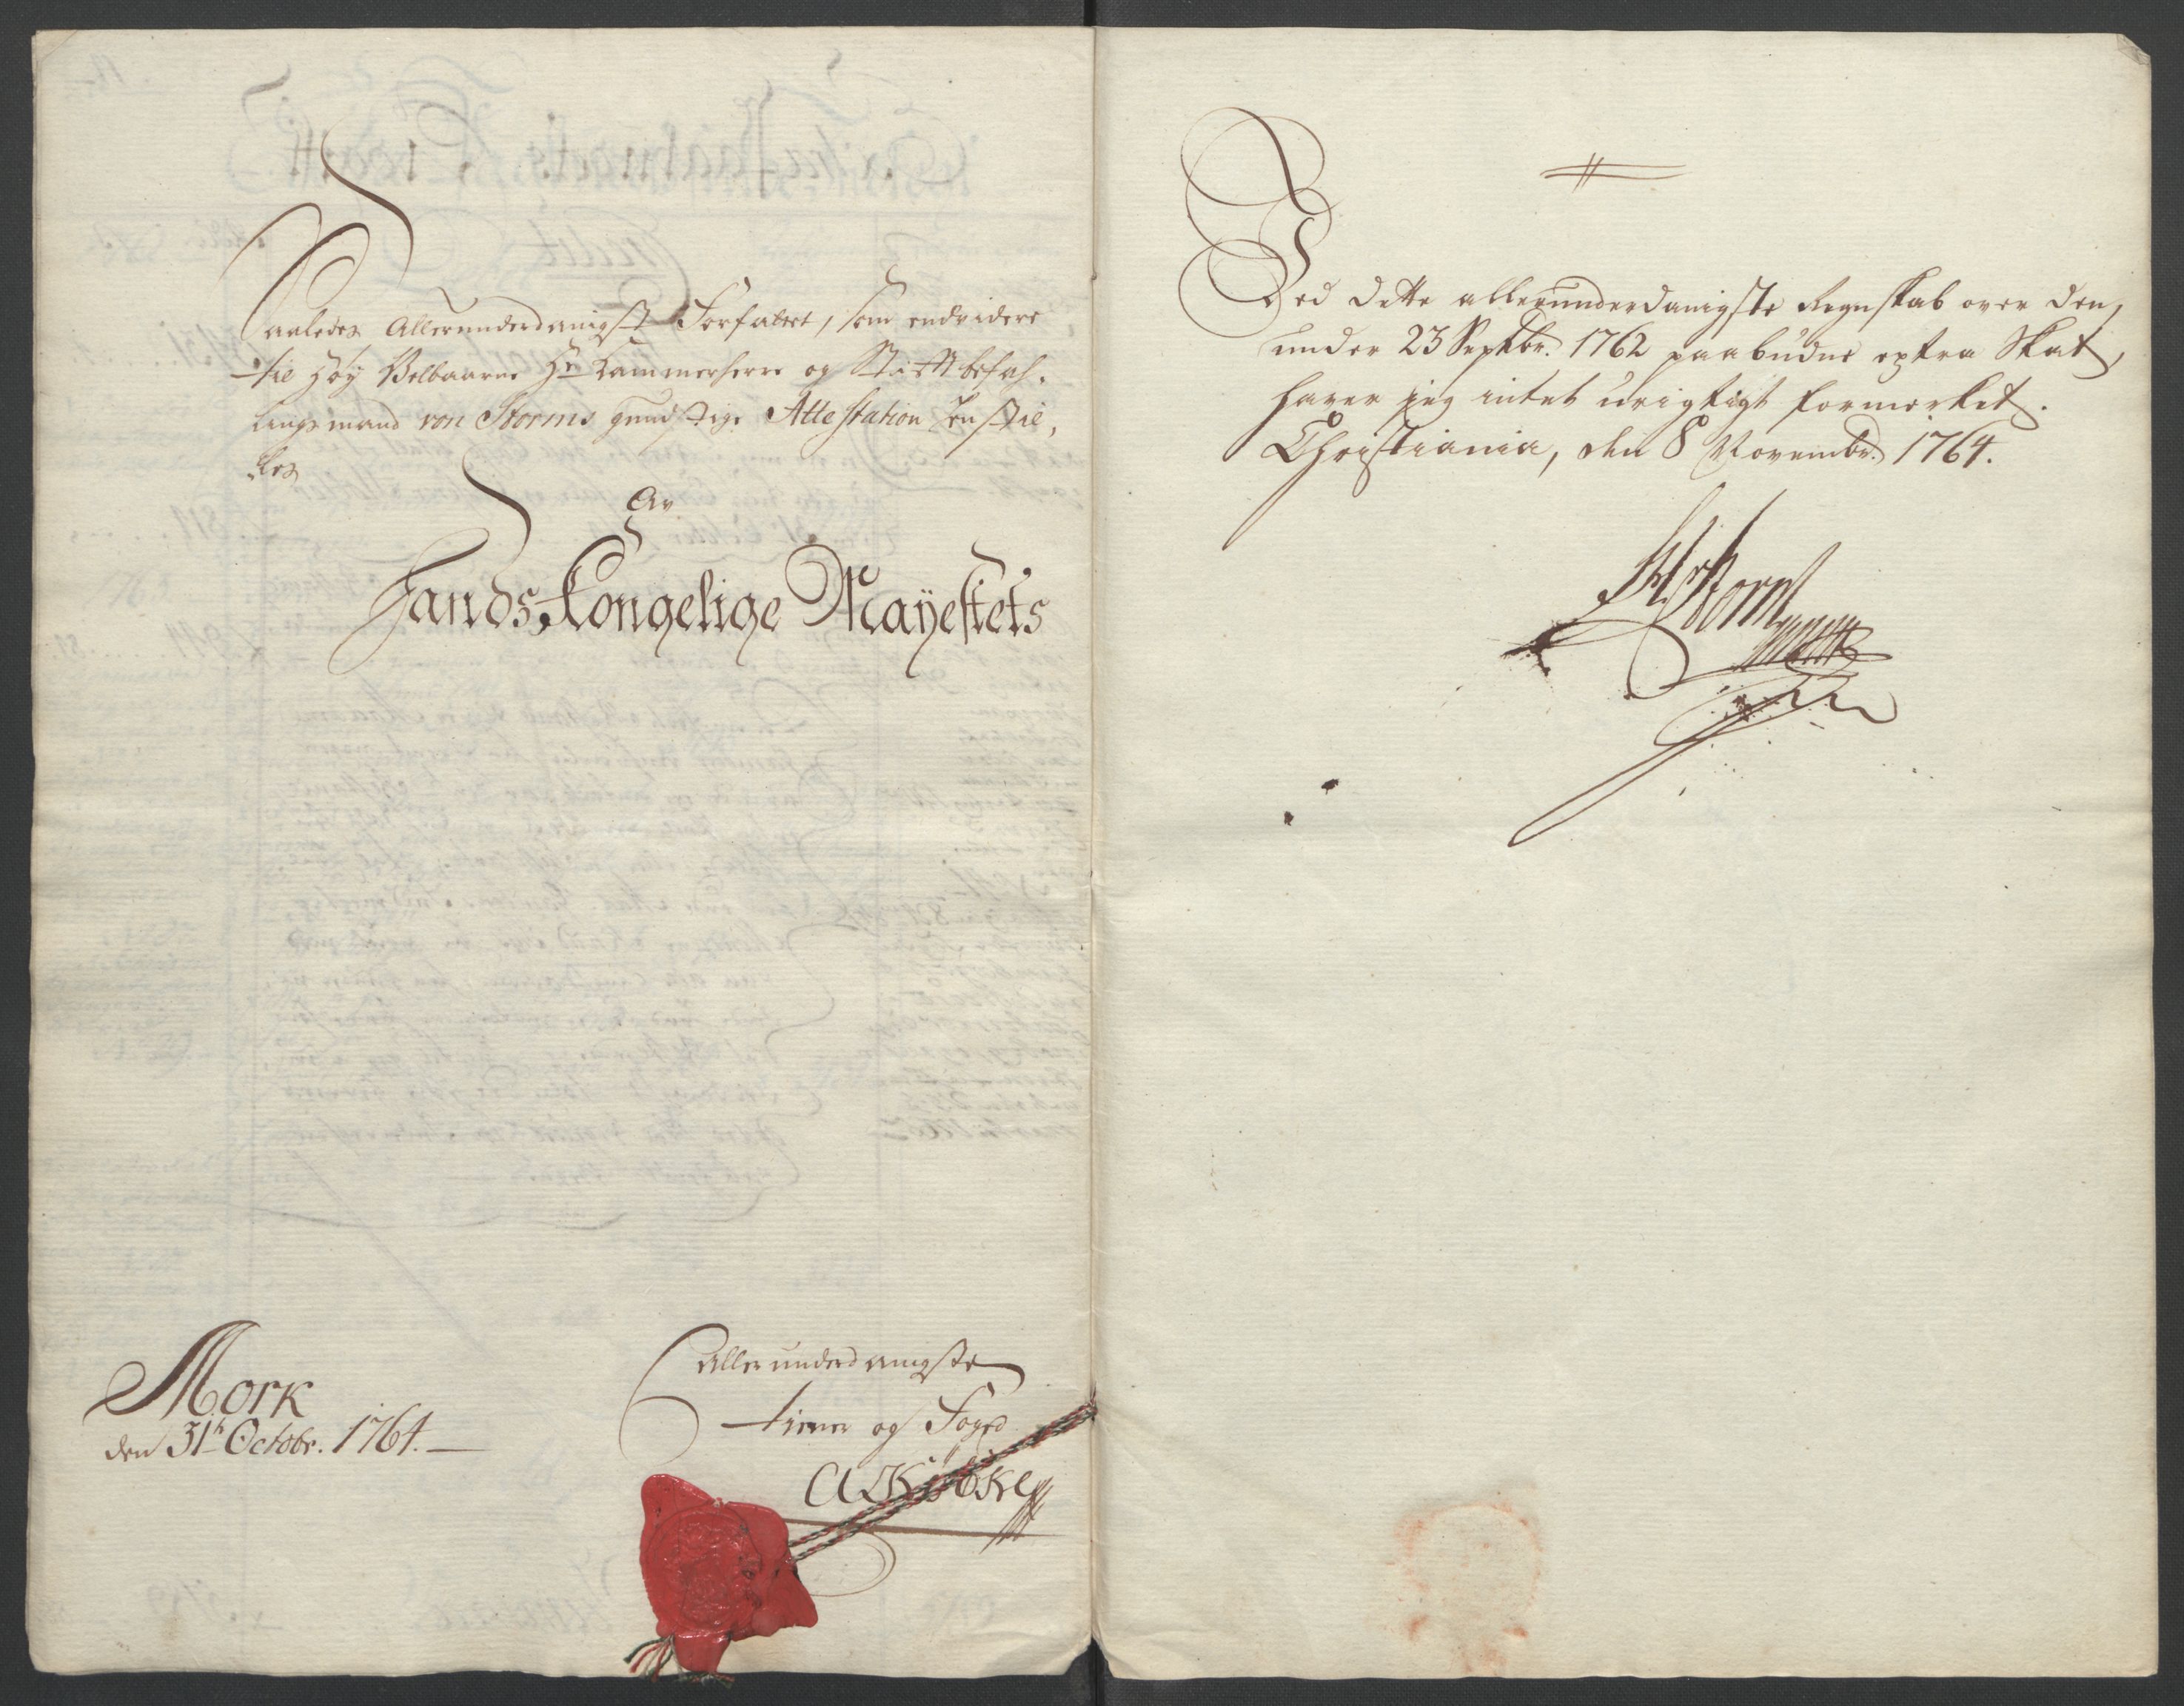 Saaledes Allerunderdanigst Forfattet, som endvidere
til Høy Velbaarne Hr Kammerherre og Stiftbefah-
lingsmand von Storms gunstige Attestation henstil,
les
Av
Hands Kongelige Mayestets
Mork
den 31te Octobr. 1764.
Allerunderdanigste
tiener og Foged
Ved dette allerunderdanigste Regnskab over den,
under 23 Septbr. 1762 paabudne extra Skat,
haver jeg intet urigtigt formerket.
Christiania, den 8 Novembr. 1764.
Storm